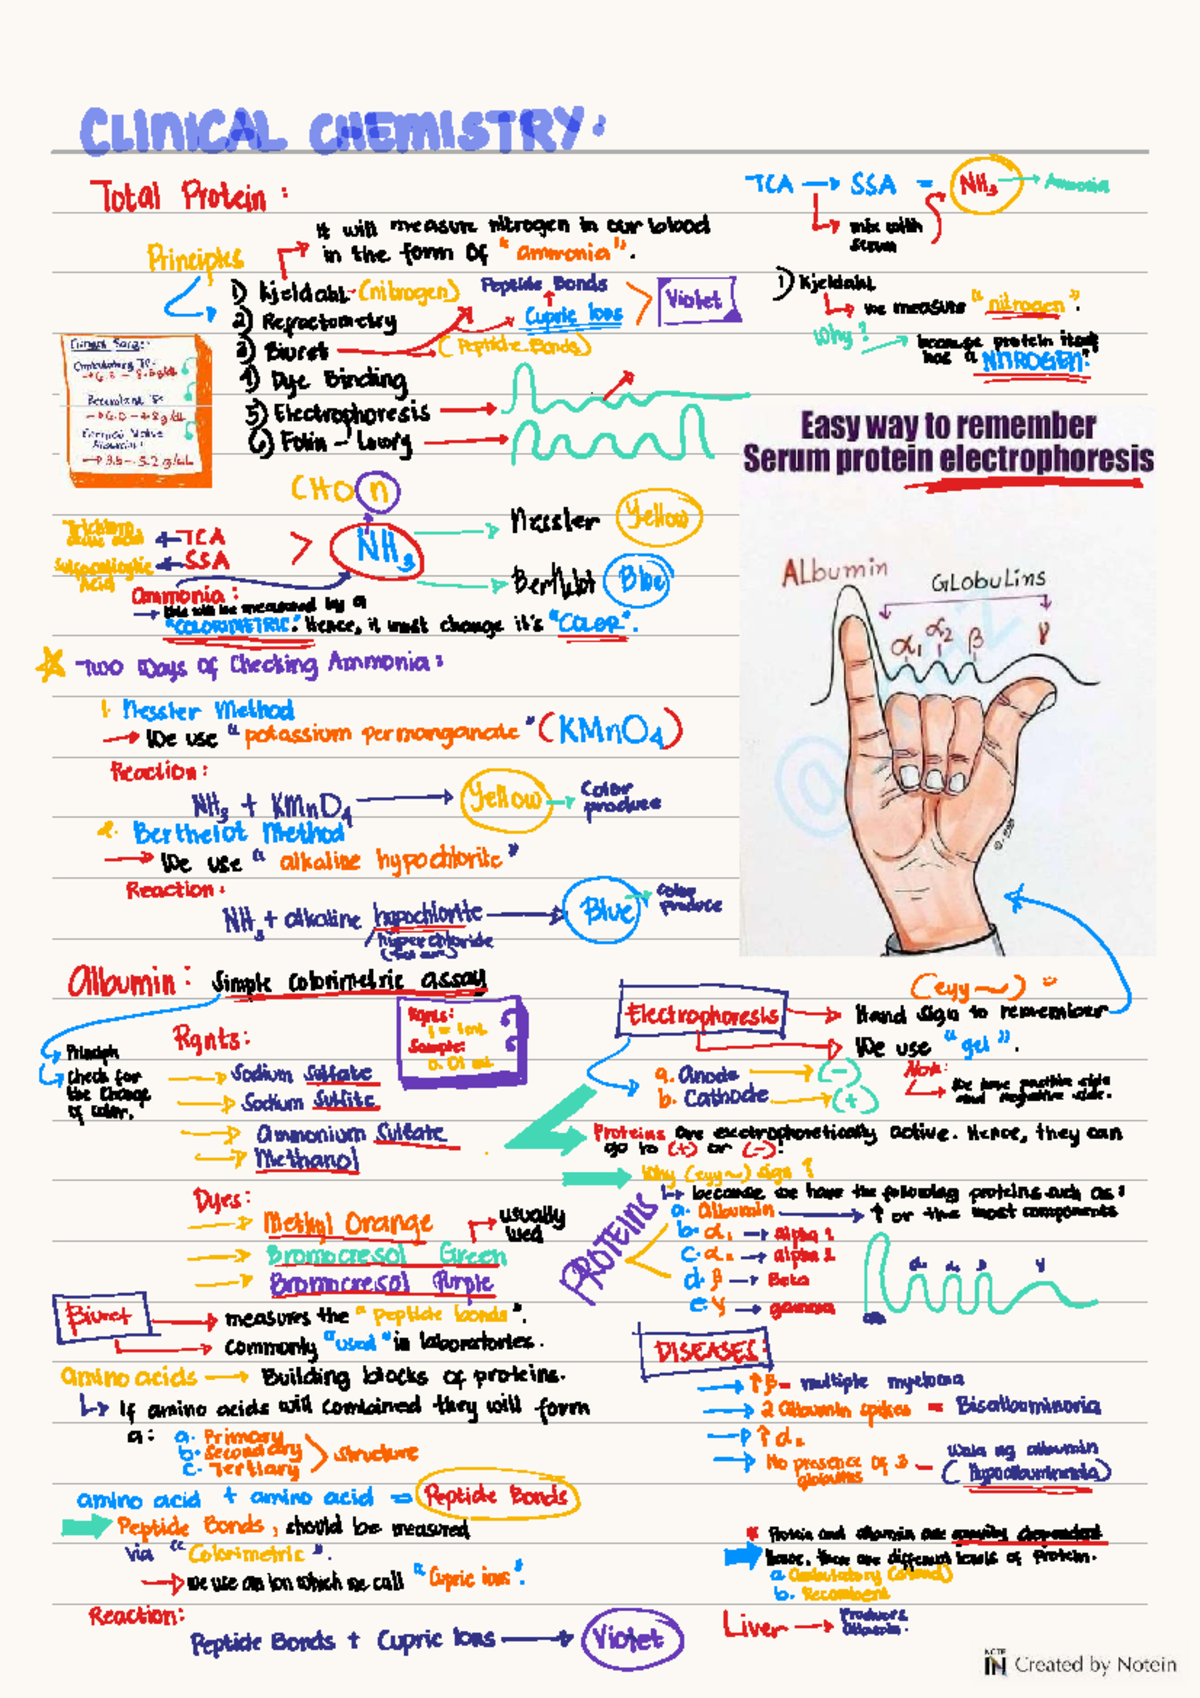 CLINICAL CHEMISTRY:
Total Protein:
it will measure nitrogen in our blood
in the form of "ammonia".
Principles
1) Kjeldahl - (nitrogen)
2) Refractometry
3) Biuret
(Peptide Bonds)
4) Dye Binding
5) Electrophoresis
6) Folin - Lowry
Peptide Bonds
Cupric Ions
Violet
TCA → SSA = NH3 → Ammonia
mix with
serum
1) Kjeldahl
we measure "nitrogen".
Why?
because protein itself
has a NITROGEN!
Ambulatory TP:
Recumbent TP:
→ 6.0 - 7.8 g/dL
→ 3.5 - 5.2 g/dL
CHO n
TCA
SSA
Acid
NH3
Nessler Yellow
Berthelot Blue
Ammonia:
→ this will be measured by a
"COLORIMETRIC". Hence, it must change it's "COLOR".
Two Ways of Checking Ammonia:
1. Nessler Method
→ We use "potassium permanganate" (KMnO4)
Reaction:
NH3 + KMnO4 → Yellow → Color
produce
2. Berthelot Method
→ We use "alkaline hypochlorite"
Reaction:
NH3 + alkaline hypochlorite → Blue → Color
produce
Easy way to remember
Serum protein electrophoresis
Albumin
GLobuLins
α1 α2 β γ
Albumin: Simple Colorimetric assay
Principle
Check for
the change
of color.
Rgnts:
Sodium Sulfate
Sodium Sulfite
Ammonium Sulfate
Methanol
Rgnts:
1 = 1mL
Sample:
0.01 mL
Dyes:
Methyl Orange
Bromocresol Green
Bromocresol Purple
usually
used
Biuret → measures the "Peptide bonds".
→ commonly "used" in laboratories.
amino acids → Building blocks of proteins.
↳ If amino acids will combined they will form
a: a. Primary
b. Secondary
c. Tertiary
structure
amino acid + amino acid = Peptide Bonds
Peptide Bonds, should be measured
via "Colorimetric".
→ we use an ion which we call "Cupric ions".
Reaction:
Peptide Bonds + Cupric Ions → Violet
(eyy~)
Electrophoresis → Hand sign to remember
→ We use "gel".
a. Anode → (-)
b. Cathode → (+)
Note:
We have positive side
and negative side.
Proteins are electrophoretically active. Hence, they can
go to (+) or (-).
Why (eyy~) sign?
↳ because we have the following proteins such as:
PROTEINS
a. Albumin → ↑ or the most components
b. α1 → alpha 1
c. α2 → alpha 2
d. β → Beta
e. γ → gamma
DISEASES:
→ ↑β = multiple myeloma
→ 2 Albumin spikes = Bisalbuminoria
→ ↑α2
→ No presence of 3
globulins
Wala ng albumin
* Protein and albumin are gravity dependent
hence, there are different levels of protein.
b. Recumbent
Liver → Produces
Albumin.
NOTE
IN Created by Notein